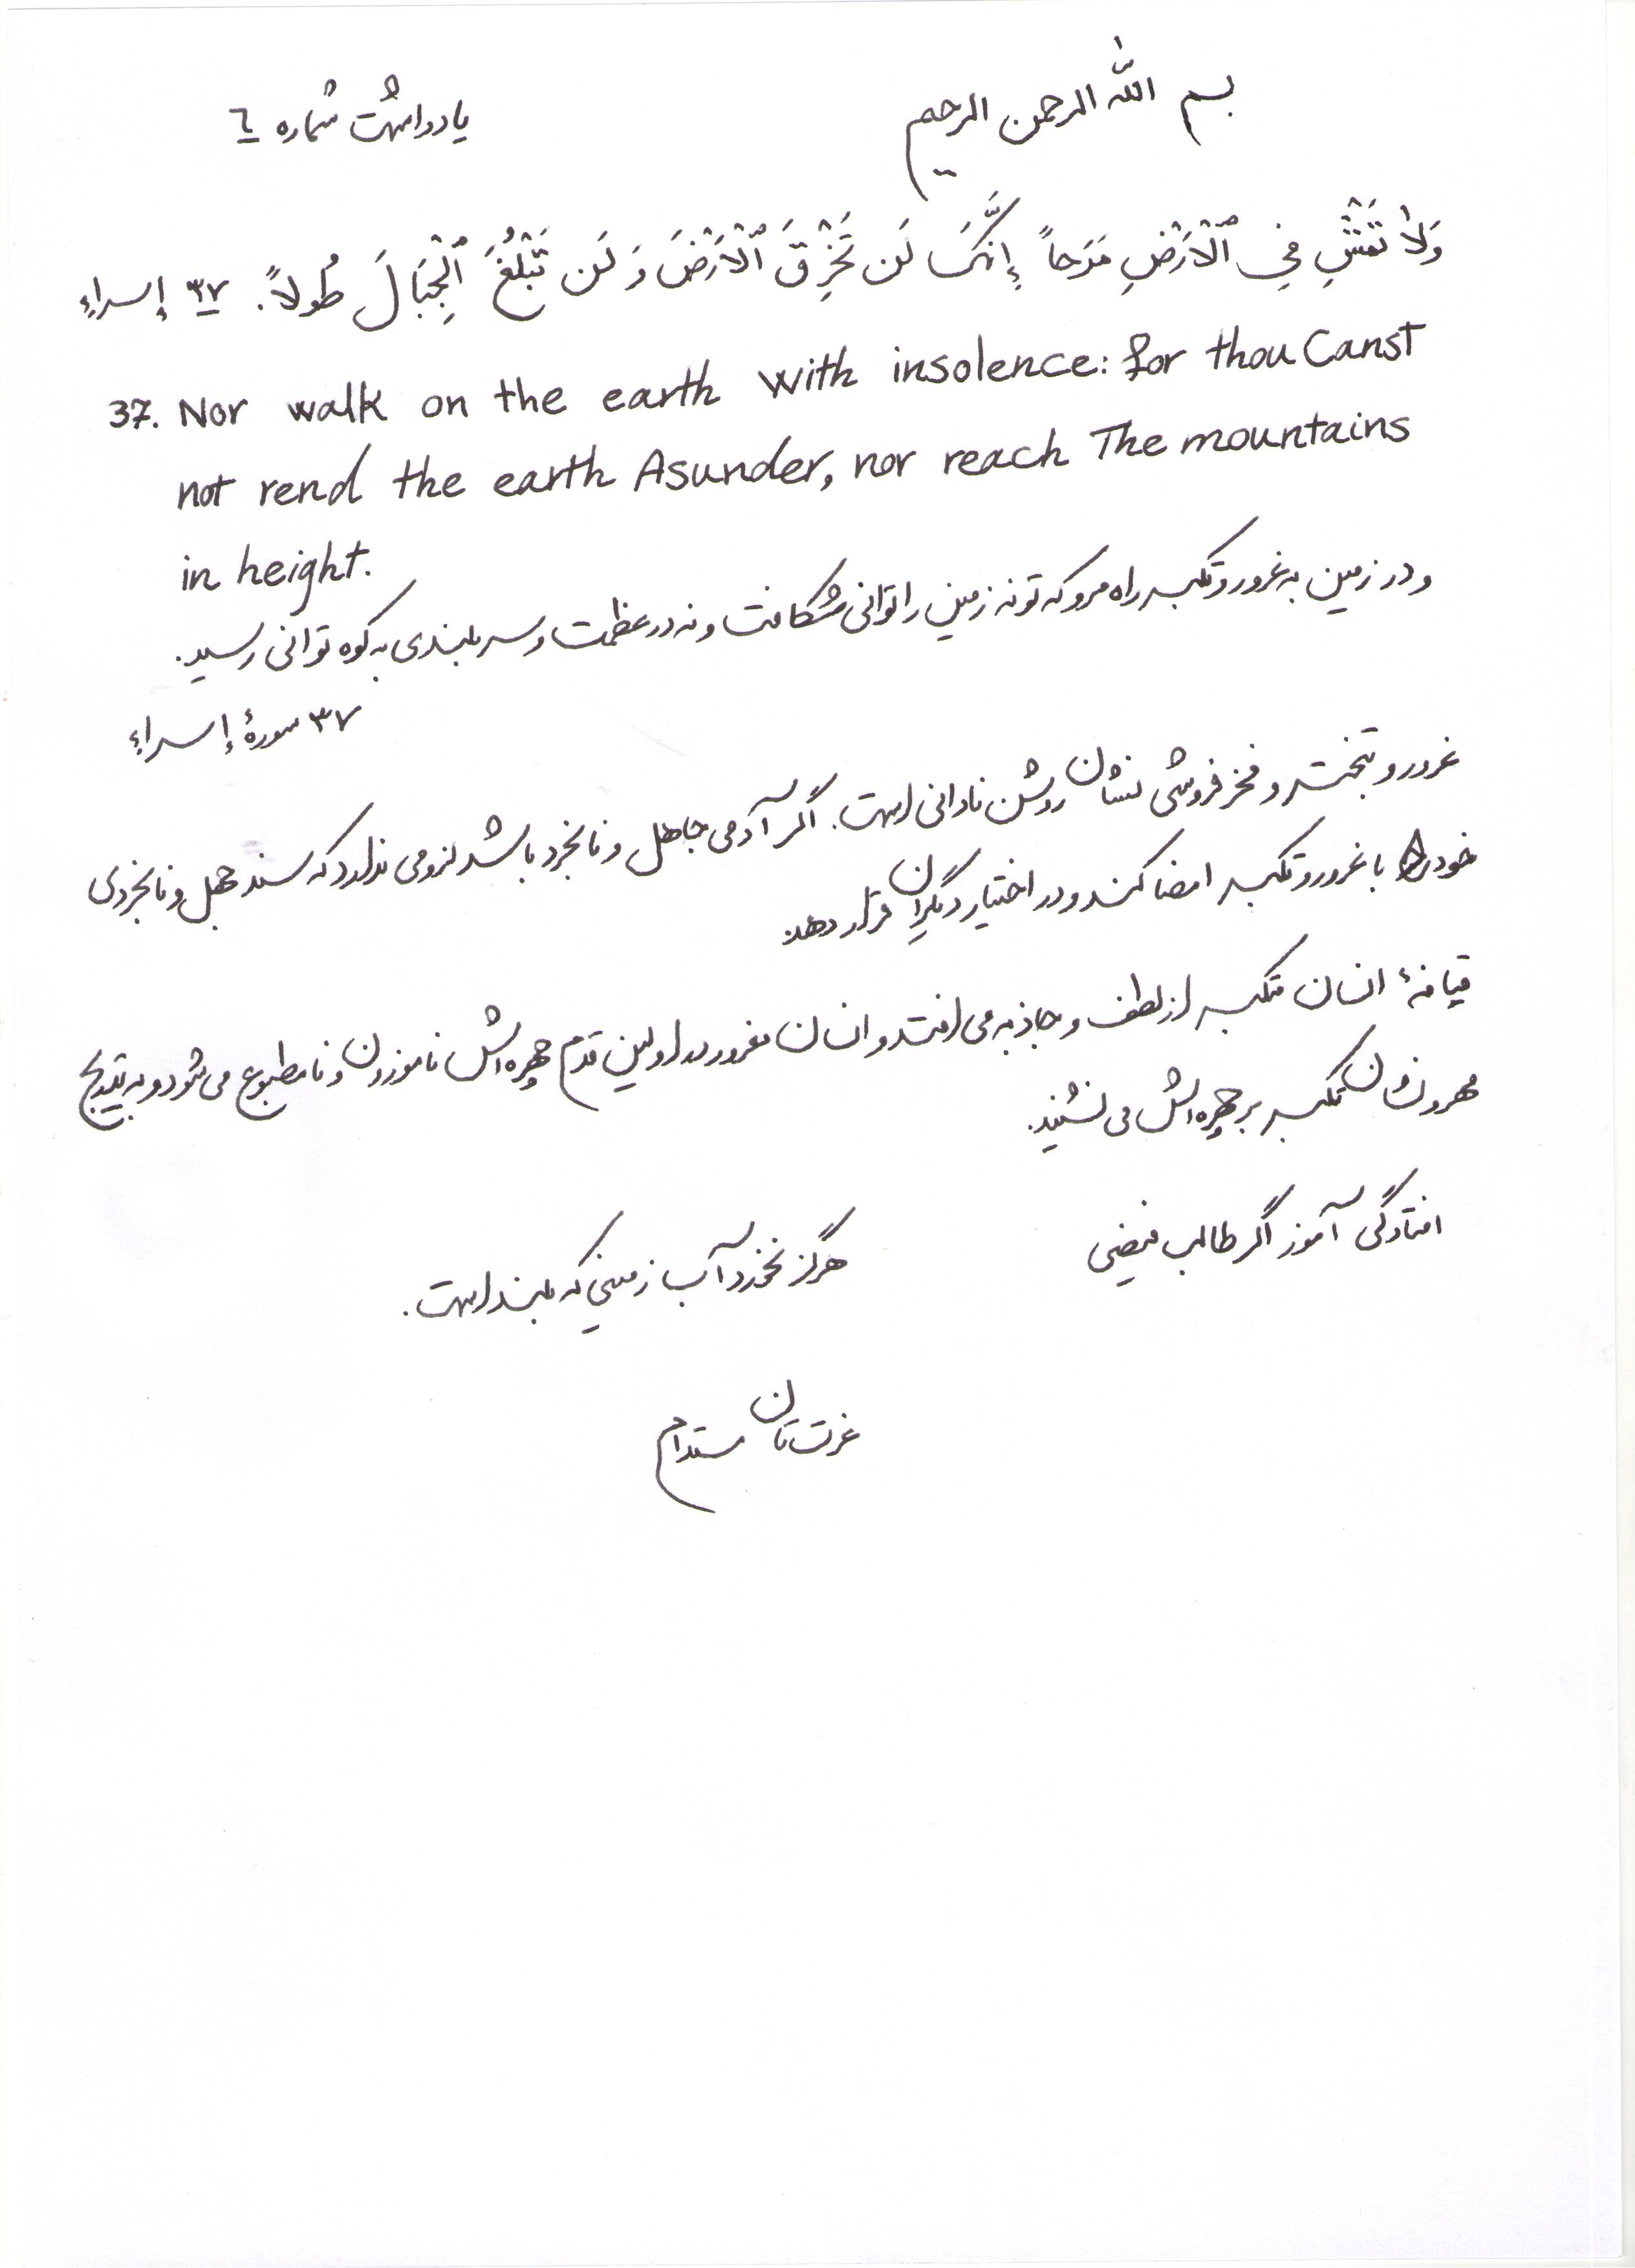 بسم الله الرحمن الرحیم
یادداشت شماره ٦
وَلاٰ تَمْشِ فِي ٱلْأَرْضِ مَرَحاً إِنَّكَ لَن تَخْرِقَ ٱلْأَرْضَ وَ لَن تَبْلُغَ ٱلْجِبَالَ طُولاً. ٣٧ إسراءِ
37. Nor walk on the earth with insolence: for thou Canst
not rend the earth Asunder, nor reach The mountains
in height.
و در زمین به غرور و تکبر راه مرو که تو نه زمین را توانی شکافت و نه در عظمت و سربلندی به کوه توانی رسید.
٣٧ سورهٔ إسراءِ
غرور و تبختر و فخرفروشی نشان روشن نادانی است. اگر آدمی جاهل و نابخرد باشد لزومی ندارد که سند جهل و نابخردی
خود را با غرور و تکبر امضا کند و در اختیار دیگران قرار دهد.
قیافهٔ انسان متکبر از لطف و جاذبه می افتد و انسان مغرور در اولین قدم چهره اش ناموزون و نامطبوع می شود و به تدریج
مهر و نشان تکبر بر چهره اش می نشیند.
افتادگی آموز اگر طالب فیضی
هرگز نخورد آب زمینی که بلند است.
عزت تان مستدام